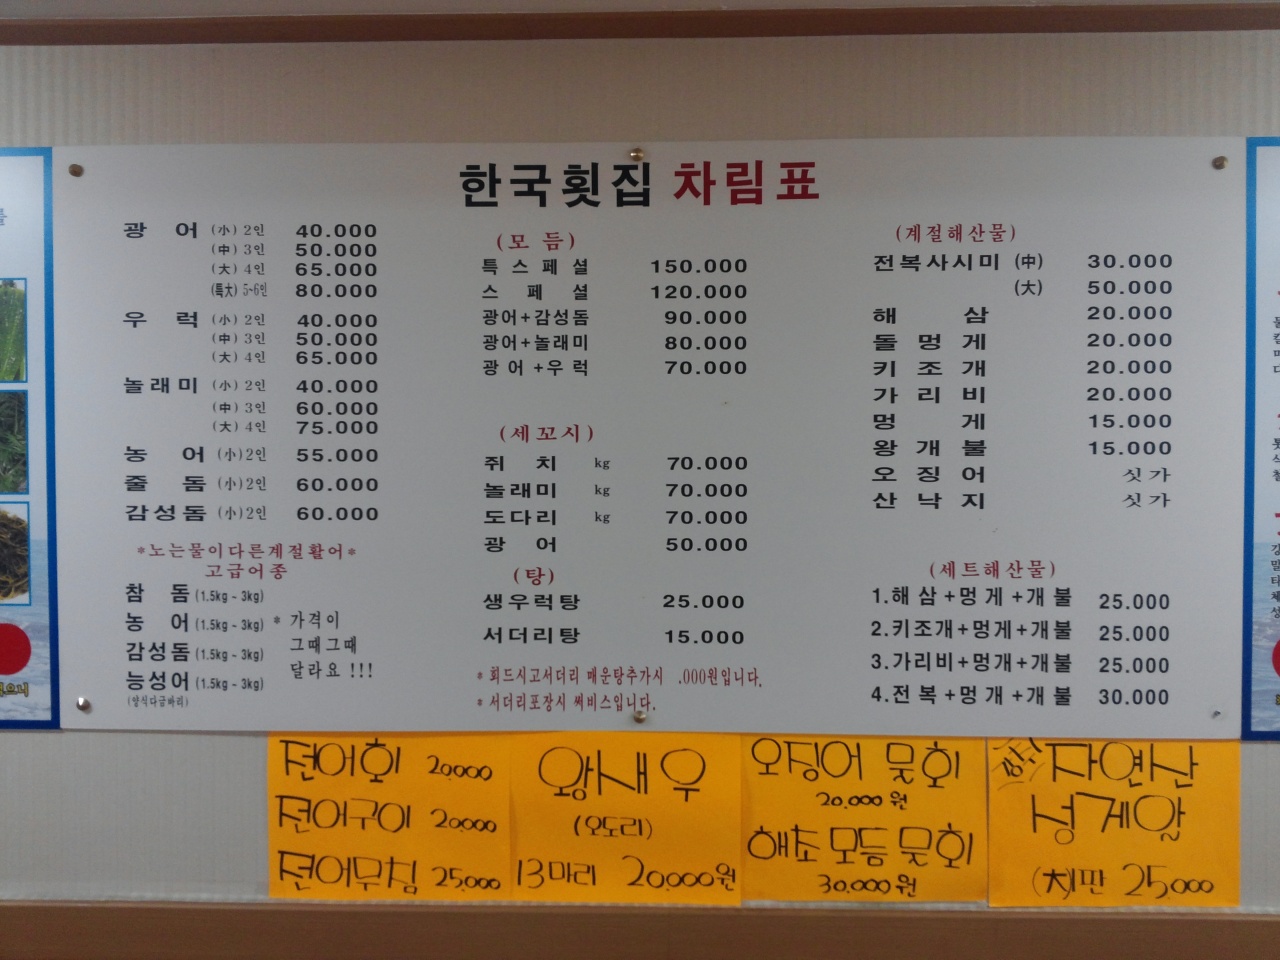 한국횟집 차림표
광어 (小) 2인 40.000
(中) 3인 50.000
(大) 4인 65.000
(특大) 5~6인 80.000
우럭 (小) 2인 40.000
(中) 3인 50.000
(大) 4인 65.000
놀래미 (小) 2인 40.000
(中) 3인 60.000
(大) 4인 75.000
농어 (小) 2인 55.000
줄돔 (小) 2인 60.000
감성돔 (小) 2인 60.000
*노는물이다른계절활어*
고급어종
참돔 (1.5kg ~ 3kg)
농어 (1.5kg ~ 3kg)
감성돔 (1.5kg ~ 3kg)
능성어 (1.5kg ~ 3kg)
(양식다금바리)
* 가격이
그때그때
달라요 !!!
(모듬)
특스페셜 150.000
스페셜 120.000
광어+감성돔 90.000
광어+놀래미 80.000
광어+우럭 70.000
(세꼬시)
쥐치 kg 70.000
놀래미 kg 70.000
도다리 kg 70.000
광어 50.000
(탕)
생우럭탕 25.000
서더리탕 15.000
* 회드시고서더리 매운탕추가시 .000원입니다.
* 서더리포장시 써비스입니다.
(계절해산물)
전복사시미 (中) 30.000
(大) 50.000
해삼 20.000
돌멍게 20.000
키조개 20.000
가리비 20.000
멍게 15.000
왕개불 15.000
오징어 싯가
산낙지 싯가
(세트해산물)
1.해삼+멍게+개불 25.000
2.키조개+멍게+개불 25.000
3.가리비+멍개+개불 25.000
4.전복+멍개+개불 30.000
전어회 20,000
전어구이 20,000
전어무침 25,000
왕새우
(오도리)
13마리 20,000원
오징어 물회
20,000원
해초 모듬 물회
30,000원
자연산
성게알
(大)1판 25,000